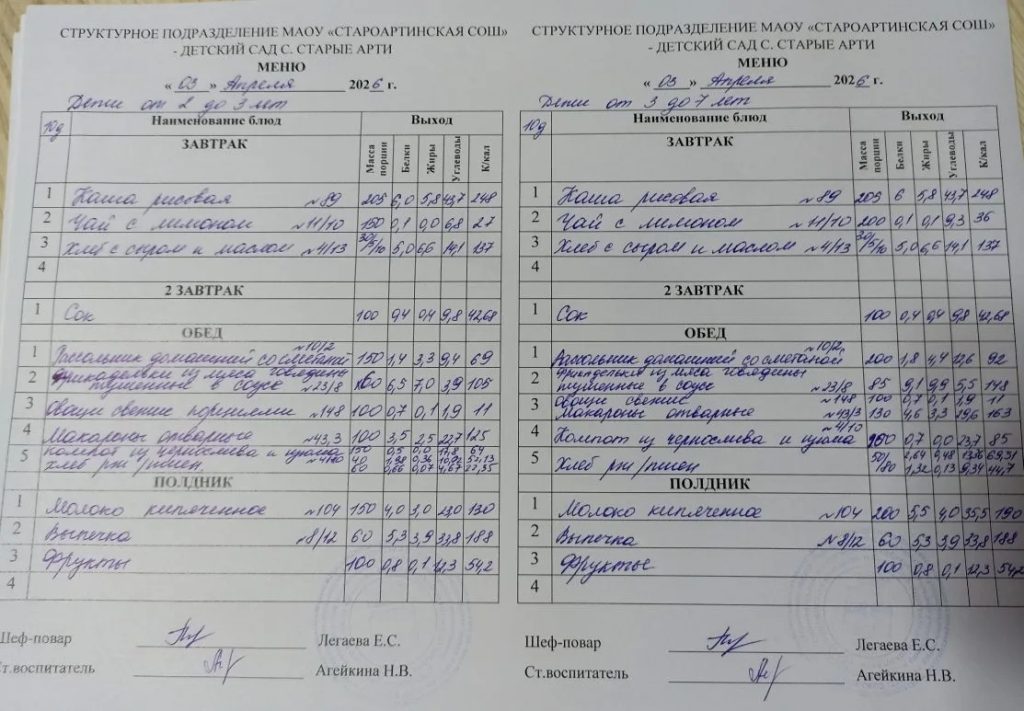 СТРУКТУРНОЕ ПОДРАЗДЕЛЕНИЕ МАОУ «СТАРОАРТИНСКАЯ СОШ»
- ДЕТСКИЙ САД С. СТАРЫЕ АРТИ
МЕНЮ
« 03 » Апреля 2026 г.
Дети от 2 до 3 лет
Наименование блюд Выход
ЗАВТРАК Масса порции Белки Жиры Углеводы К/кал
1 Каша рисовая №89 205 6,0 5,8 43,7 248
2 Чай с лимоном №11/10 150 0,1 0,0 6,8 27
3 Хлеб с сыром и маслом №4/13 30/5/10 5,0 6,6 14,1 137
4
2 ЗАВТРАК
1 Сок 100 0,4 0,4 9,8 42,68
ОБЕД
№10/2
1 Рассольник домашний со сметаной 150 1,4 3,3 9,4 69
2 Фрикадельки из мяса говядины
тушенные в соусе №23/8 60 6,5 7,0 3,9 105
3 Овощи свежие порциями №148 100 0,7 0,1 1,9 11
4 Макароны отварные №43,3 100 3,5 2,5 22,7 125
5 Компот из чернослива и изюма 150 0,5 0,0 17,8 64
хлеб рж/пшен. 40
60 0,66 0,07 4,67 22,35
ПОЛДНИК
1 Молоко кипяченное №104 150 4,0 3,0 23,0 130
2 Выпечка №8/12 60 5,3 3,9 33,8 188
3 Фрукты 100 0,8 0,1 12,3 54,2
4
Шеф-повар Легаева Е.С.
Ст.воспитатель Агейкина Н.В.
СТРУКТУРНОЕ ПОДРАЗДЕЛЕНИЕ МАОУ «СТАРОАРТИНСКАЯ СОШ»
- ДЕТСКИЙ САД С. СТАРЫЕ АРТИ
МЕНЮ
« 03 » Апреля 2026 г.
Дети от 3 до 7 лет
Наименование блюд Выход
ЗАВТРАК Масса порции Белки Жиры Углеводы К/кал
1 Каша рисовая №89 205 6 5,8 43,7 248
2 Чай с лимоном №11/10 200 0,1 0,1 9,3 36
3 Хлеб с сыром и маслом №4/13 30/5/10 5,0 6,6 14,1 137
4
2 ЗАВТРАК
1 Сок 100 0,4 0,4 9,8 42,68
ОБЕД
№10/2
1 Рассольник домашний со сметаной 200 1,8 4,4 12,6 92
2 Фрикадельки из мяса говядины
тушенные в соусе №23/8 85 9,1 9,9 5,5 148
3 Овощи свежие №148 100 0,7 0,1 1,9 11
Макароны отварные №43/3 130 4,6 3,3 29,6 163
№4/10
4 Компот из чернослива и изюма 0,7 0,0 23,7 85
5 Хлеб рж/пшен 50/80 2,64 0,48 69,51
1,32 0,13 9,34 44,7
ПОЛДНИК
1 Молоко кипяченное №104 200 5,5 4,0 35,5 190
2 Выпечка №8/12 60 5,3 3,9 33,8 188
3 Фрукты 100 0,8 0,1 12,3 54,2
4
Шеф-повар Легаева Е.С.
Ст.воспитатель Агейкина Н.В.